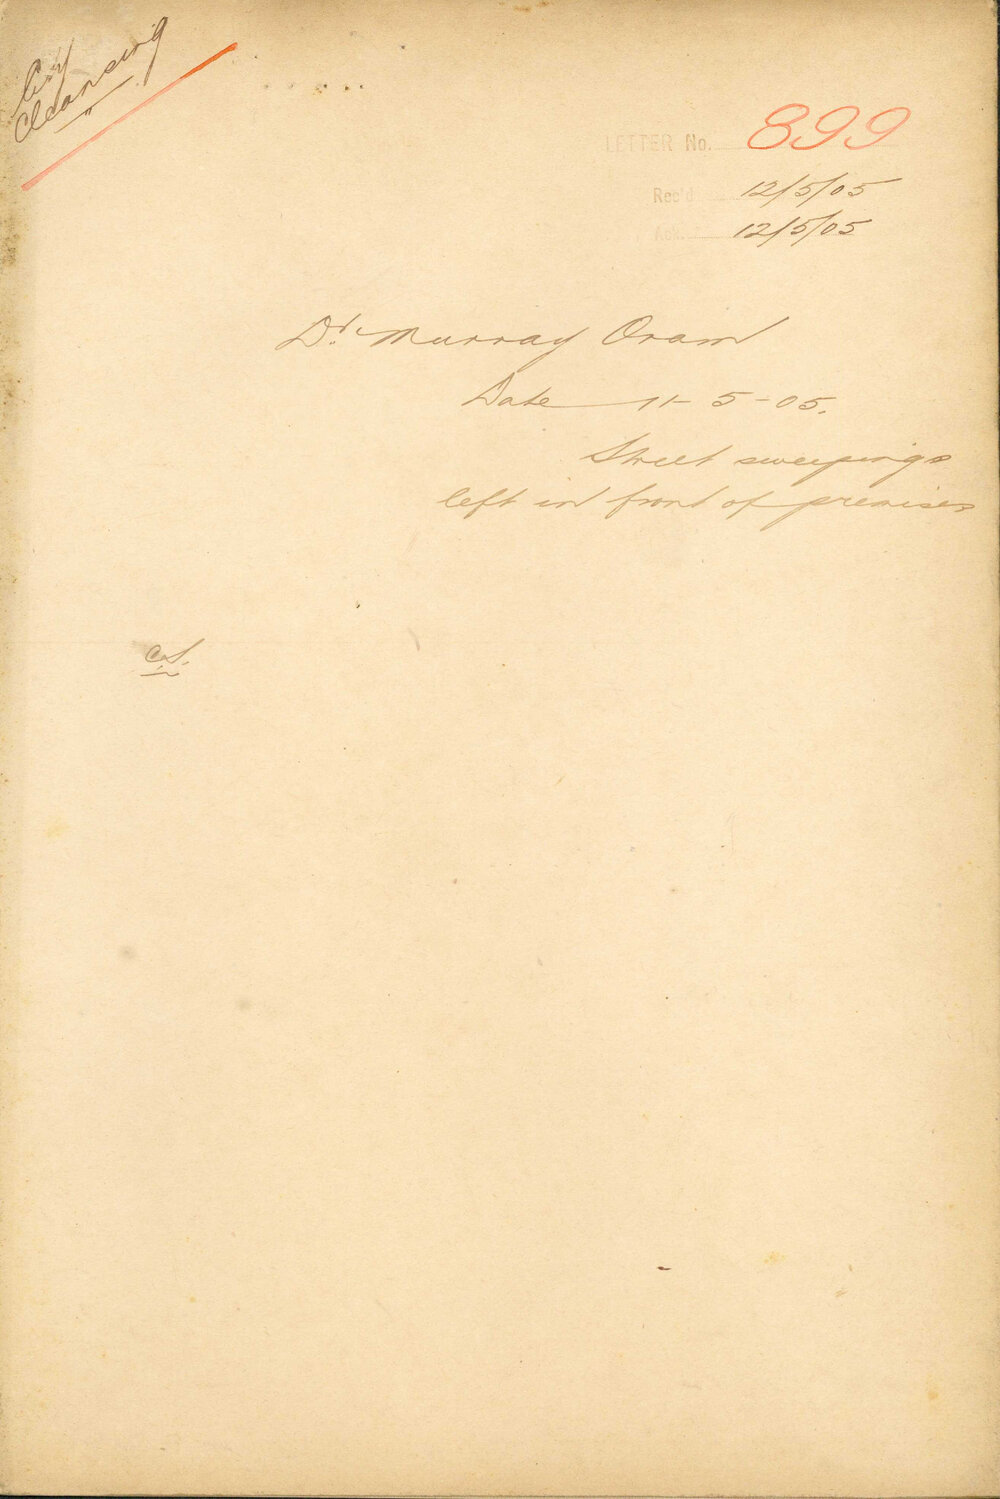 City
Cleansing
LETTER No. 899
Rec'd 12/5/05
Ack. 12/5/05
Dr. Murray Oram
Date 11-5-05.
Street sweepings
left in front of premises
C.S.